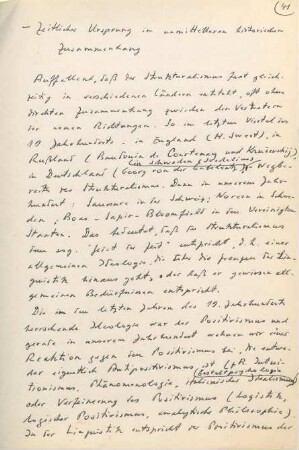 41
– Zeitlicher Ursprung im unmittelbaren historischen
Zusammenhang
Auffallend, daß der Strukturalismus fast gleich-
zeitig in verschiedenen Ländern entsteht, oft ohne
direkten Zusammenhang zwischen den Vertretern
der neuen Richtungen. So im letzten Viertel des
19. Jahrhunderts – in England (H. Sweet), in
Rußland (Baudouin de Courtenay und Kruszewski),
in Schweden
in Deutschland (Georg von der Gabelentz) – Wegbe-
reiter des Strukturalismus. Dann in unserem Jahr-
hundert: Saussure in der Schweiz; Noreen in Schwe-
den, Boas - Sapir - Bloomfield in den Vereinigten
Staaten. Das bedeutet, daß der Strukturalismus
dem sog. "Geist der Zeit" entspricht, d.h. einer
allgemeinen Ideologie, die über die Grenzen der Lin-
guistik hinaus geht, oder daß er gewissen all-
gemeinen Bedürfnissen entspricht.
Die in den letzten Jahren des 19. Jahrhunderts
herrschende Ideologie war der Positivismus und
gerade in unserem Jahrhundert nehmen wir eine
Reaktion gegen den Positivismus bei, die entwe-
der eigentlich Antipositivismus ist (z.B. Intui-
Gestaltpsychologie
tionismus, Phänomenologie, italienischer Idealismus)
oder Verfeinerung des Positivismus (Logistik,
logischer Positivismus, analytische Philosophie).
In der Linguistik entspricht dem Positivismus der